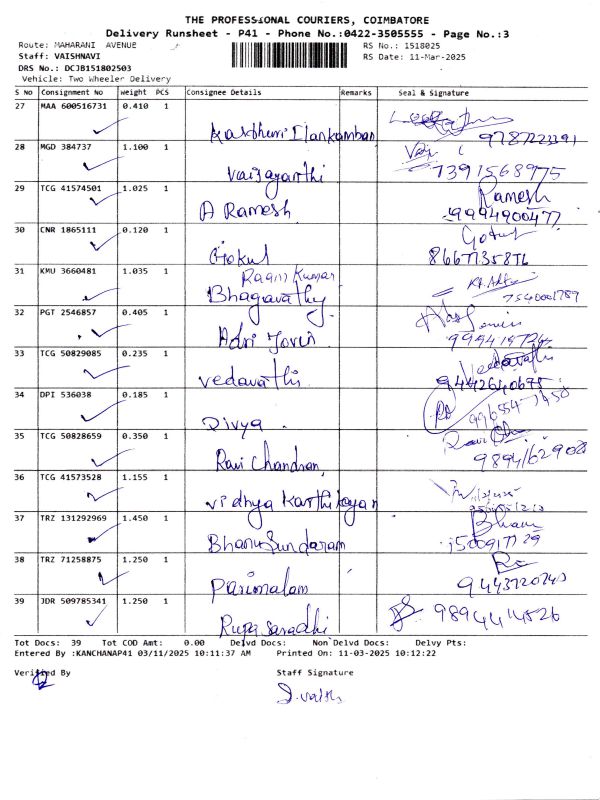 THE PROFESSIONAL COURIERS, COIMBATORE
Delivery Runsheet - P41 - Phone No.:0422-3505555 - Page No.:3
Route: MAHARANI AVENUE RS No.: 1518025
Staff: VAISHNAVI RS Date: 11-Mar-2025
DRS No.: DCJB151802503
Vehicle: Two Wheeler Delivery
S No Consignment No Weight PCS Consignee Details Remarks Seal & Signature
27 MAA 600516731 0.410 1
Kasthuri Ilankamban 9787223391
28 MGD 384737 1.100 1
Vaijayanthi 7391568975
29 TCG 41574501 1.025 1 Ramesh
A Ramesh 9994900477
30 CNR 1865111 0.120 1 Gokul
Gokul
31 KMU 3660481 1.035 1 Ragni Kumar
Bhagavathy 7540001789
32 PGT 2546857 0.405 1
Adri
33 TCG 50829085 0.235 1 Vedavathi
Vedavathi 9442640675
34 DPI 536038 0.185 1
Divya
35 TCG 50828659 0.350 1
Ravi Chandran
36 TCG 41573528 1.155 1
Vidhya Karthikayan
37 TRZ 131292969 1.450 1
Bhanu Sundaram
38 TRZ 71258875 1.250 1
Parimalam
39 JDR 509785341 1.250 1 9894414526
Rupa Saradhi
Tot Docs: 39 Tot COD Amt: 0.00 Delvd Docs: Non Delvd Docs: Delvy Pts:
Entered By :KANCHANAP41 03/11/2025 10:11:37 AM Printed On: 11-03-2025 10:12:22
Verified By Staff Signature